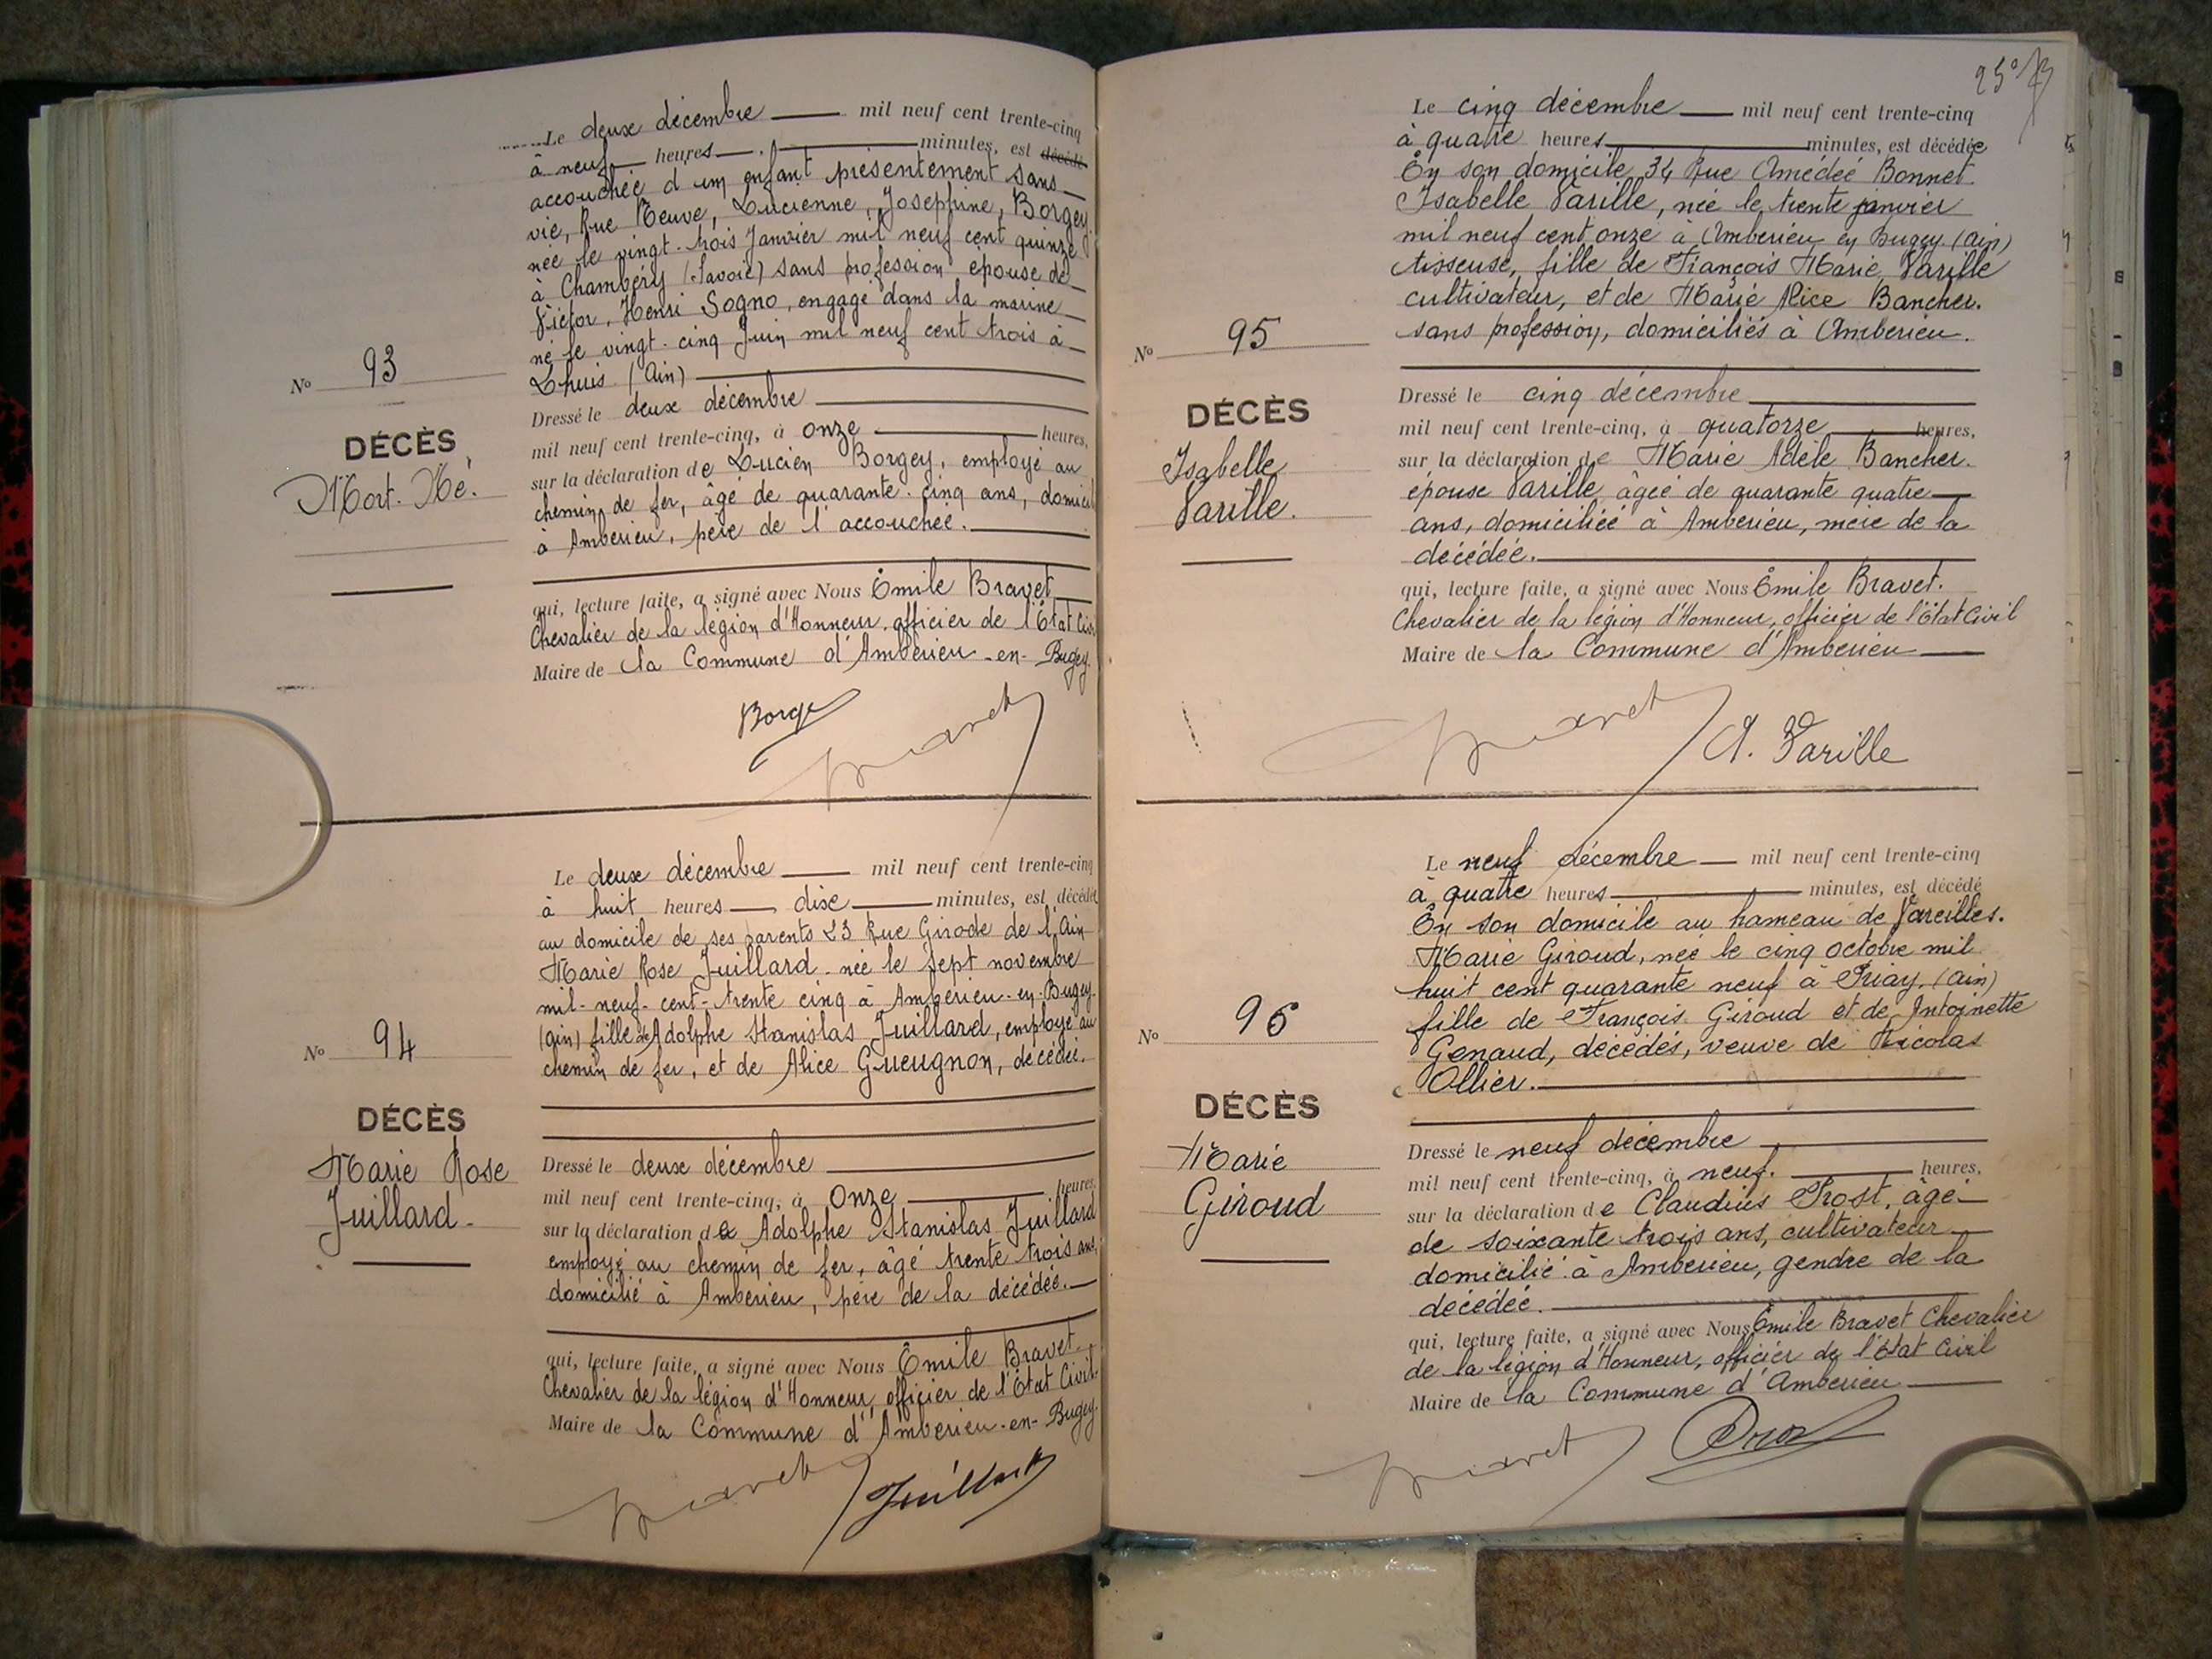 Le deux décembre mil neuf cent trente-cinq
à neuf heures minutes, est décédé
accouchée d'un enfant présentement sans
vie, Rue Neuve, Lucienne, Joséphine, Borgey
née le vingt-trois Janvier mil neuf cent quinze
à Chambéry (Savoie) sans profession épouse de
Victor, Henri Sogno, engagé dans la marine
né le vingt-cinq Juin mil neuf cent trois à
Lhuis (Ain)
N° 93
DÉCÈS
Mort-Né.
Dressé le deux décembre
mil neuf cent trente-cinq, à onze heures,
sur la déclaration de Lucien Borgey, employé au
chemin de fer, âgé de quarante-cinq ans, domicil
à Ambérieu, père de l'accouchée.
qui, lecture faite, a signé avec Nous Émile Bravet
Chevalier de la légion d'Honneur, officier de l'État Civil
Maire de la Commune d'Ambérieu-en-Bugey.
Borgey
Bravet
Le deux décembre mil neuf cent trente-cinq
à huit heures dix minutes, est décédée
au domicile de ses parents 23 Rue Girode de l'Ain
Marie Rose Juillard née le sept novembre
mil-neuf-cent-trente cinq à Ambérieu-en-Bugey
(ain) fille de Adolphe Stanislas Juillard, employé au
chemin de fer, et de Alice Gueugnon, décédée.
N° 94
DÉCÈS
Marie Rose
Juillard
Dressé le deux décembre
mil neuf cent trente-cinq, à Onze heures,
sur la déclaration de Adolphe Stanislas Juillard
employé au chemin de fer, âgé trente trois ans,
domicilié à Ambérieu, père de la décédée.
qui, lecture faite, a signé avec Nous Émile Bravet
Chevalier de la légion d'Honneur, officier de l'État Civil
Maire de la Commune d'Ambérieu-en-Bugey.
Bravet
Juillard
Le cinq décembre mil neuf cent trente-cinq
à quatre heures minutes, est décédée
En son domicile, 34 Rue Amédée Bonnet
Isabelle Varille, née le trente janvier
mil neuf cent onze à Ambérieu en Bugey (ain)
tisseuse, fille de François Marie Varille
cultivateur, et de Marie Alice Bancher.
sans profession, domiciliés à Ambérieu.
N° 95
DÉCÈS
Isabelle
Varille.
Dressé le cinq décembre
mil neuf cent trente-cinq, à quatorze heures,
sur la déclaration de Marie Adèle Bancher.
épouse Varille, âgée de quarante quatre
ans, domiciliée à Ambérieu, mère de la
décédée.
qui, lecture faite, a signé avec Nous Émile Bravet.
Chevalier de la légion d'Honneur, officier de l'État Civil
Maire de la Commune d'Ambérieu
Bravet
A. Varille
Le neuf décembre mil neuf cent trente-cinq
à quatre heures minutes, est décédé
En son domicile au hameau de Vareilles.
Marie Giroud, née le cinq octobre mil
huit cent quarante neuf à Priay, (ain)
fille de François Giroud et de Antoinette
Genaud, décédés, veuve de Nicolas
Ollier.
N° 96
DÉCÈS
Marie
Giroud
Dressé le neuf décembre
mil neuf cent trente-cinq, à neuf. heures,
sur la déclaration de Claudius Prost, âgé
de soixante trois ans, cultivateur
domicilié à Ambérieu, gendre de la
décédée.
qui, lecture faite, a signé avec Nous Émile Bravet Chevalier
de la légion d'Honneur, officier de l'état Civil
Maire de la Commune d'Ambérieu
Bravet